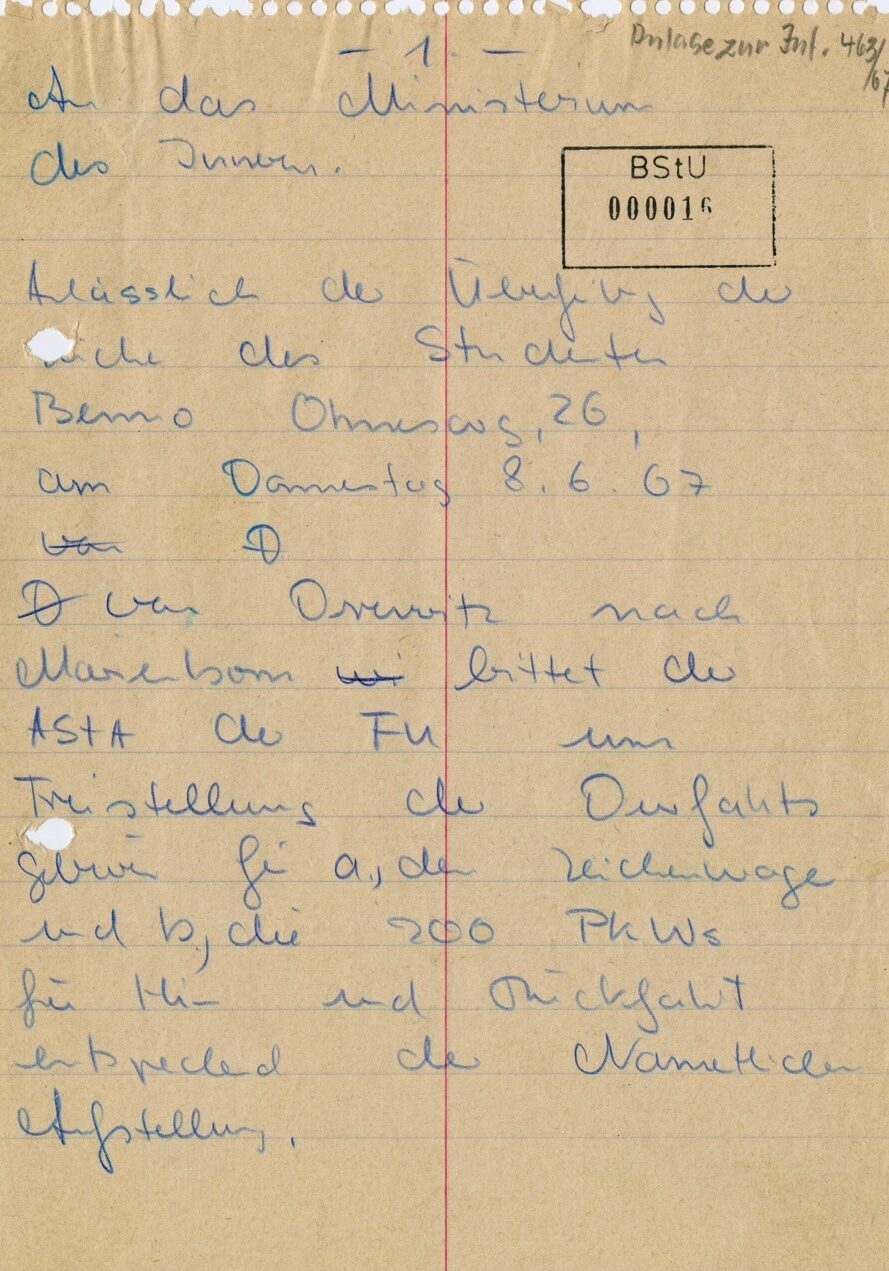 - 1. -
Anlage zur Inf. 463/67
An das Ministerium
des Innern.
BStU
000016
Anlässlich der Überführung der
Leiche des Studenten
Benno Ohnesorg, 26,
am Donnerstag 8.6.67
von D
D von Drewitz nach
Marienborn wi bittet der
AStA der FU um
Freistellung der Durfahrts
gebür für a., den Leichenwagen
und b., die 200 PkWs
für Hin und Rückfahrt
entsprechend der Namentlichen
Aufstellung.